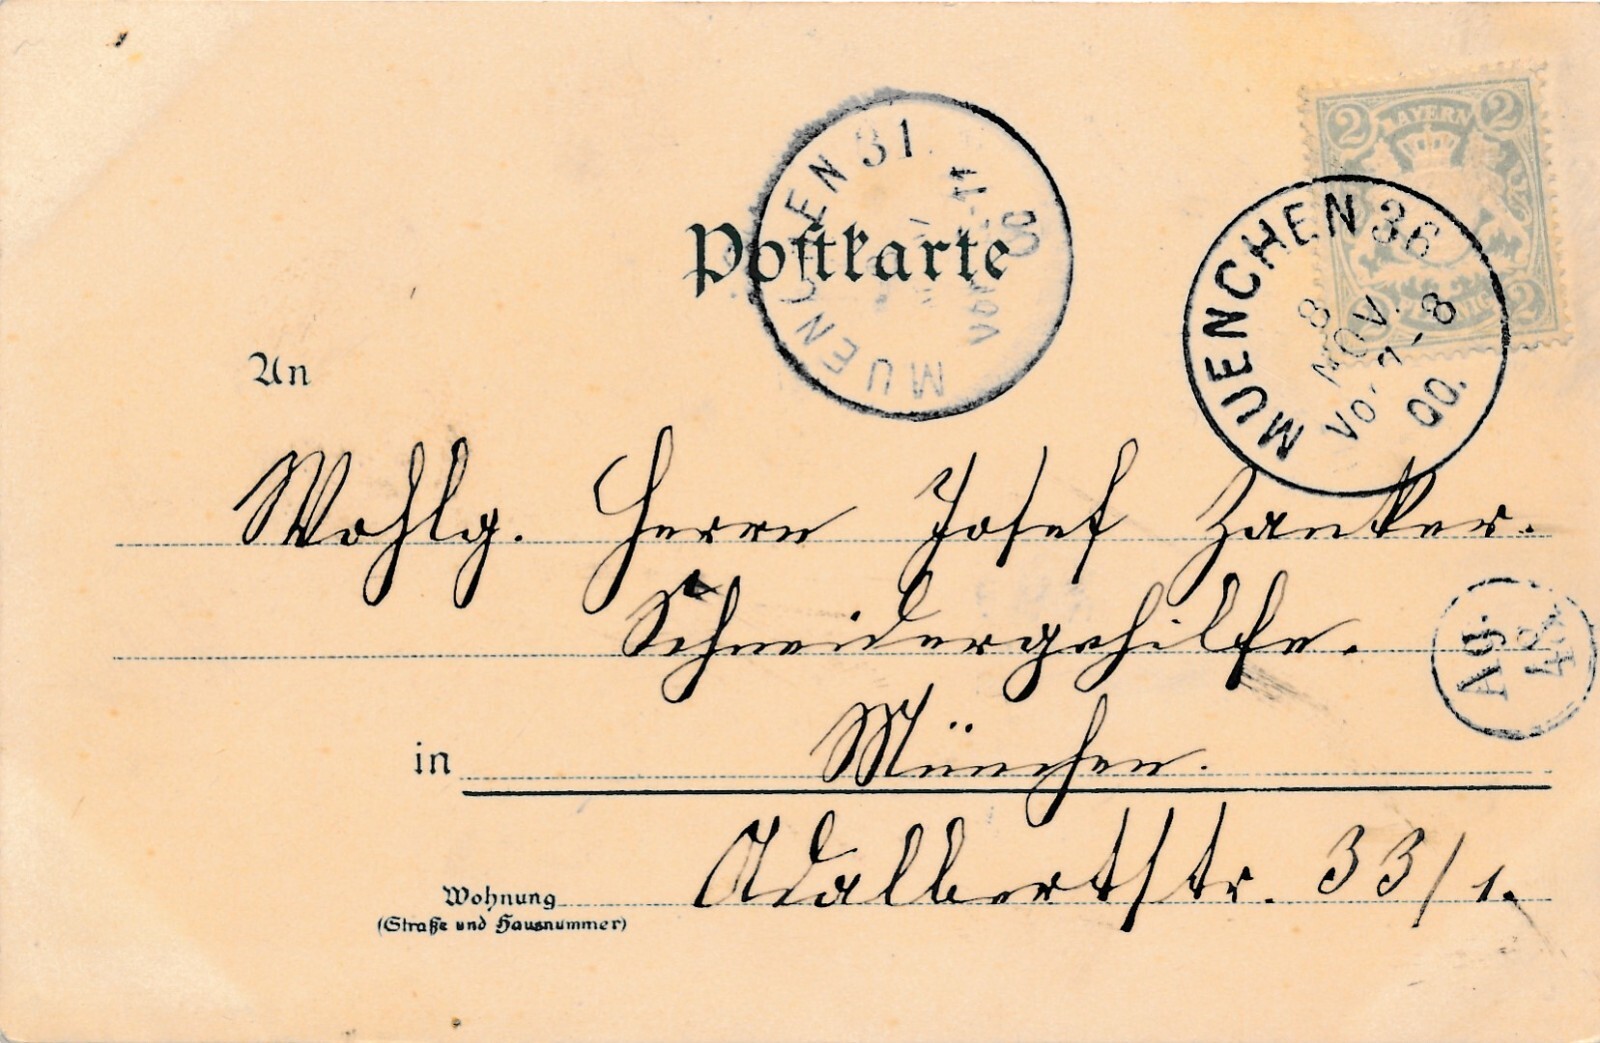 2 BAYERN 2
MUENCHEN 31.
VOR. 11
00
MUENCHEN 36
8
NOV.
VOR. 7-8
00.
Postkarte
An
Wohlg. Herrn Josef Zanker.
Schneidergehilfe.
Ag.
in München.
Adalbertstr. 33/1.
Wohnung
(Straße und Hausnummer)